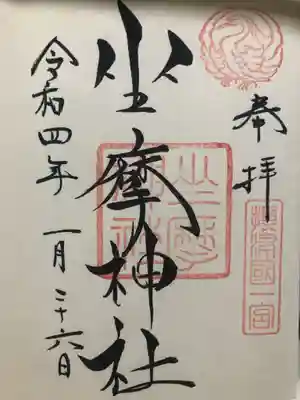 奉拝
摂津國一宮
坐摩神社
令和四年一月二十六日